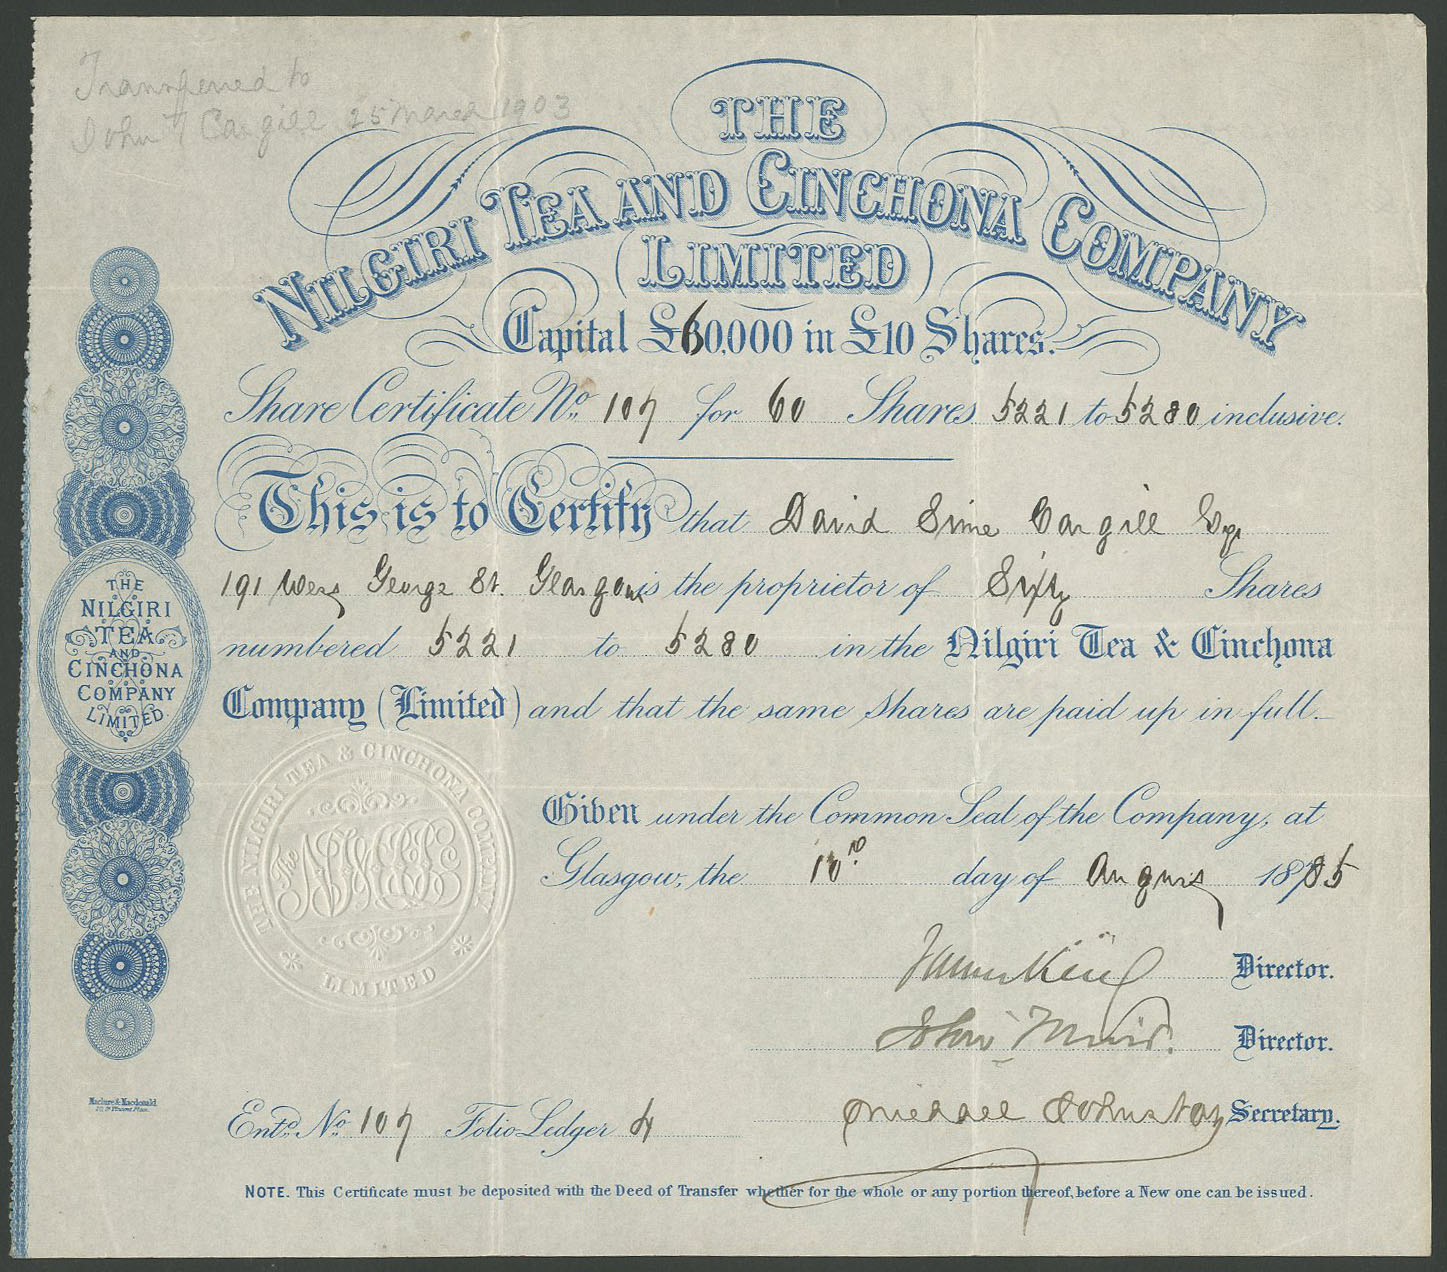 Transferred to
John T Cargill 25 March 1903
THE
NILGIRI TEA AND CINCHONA COMPANY
LIMITED
Capital £60,000 in £10 Shares.
Share Certificate No. 107 for 60 Shares 5221 to 5280 inclusive.
This is to Certify that David Sime Cargill Esqr
191 West George St. Glasgow is the proprietor of Sixty Shares
numbered 5221 to 5280 in the Nilgiri Tea & Cinchona
Company (Limited) and that the same shares are paid up in full.
THE
NILGIRI
TEA
AND
CINCHONA
COMPANY
LIMITED.
THE NILGIRI TEA & CINCHONA COMPANY
The
LIMITED
Given under the Common Seal of the Company, at
Glasgow, the 10th day of August 1885
James King Director.
John Muir. Director.
Michael Johnston Secretary.
Maclure & Macdonald
Entd. No. 107 Folio Ledger 4
NOTE. This Certificate must be deposited with the Deed of Transfer whether for the whole or any portion thereof, before a New one can be issued.